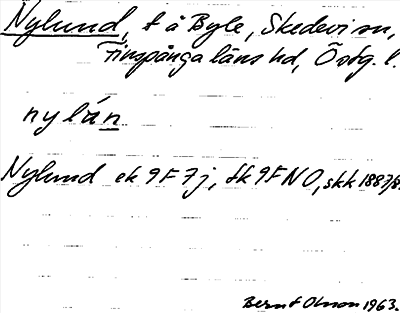 Nylund, t å Byle, Skedevi sn,
Finspånga läns hd, Östg. l.
nylán
Nylund ek 9F7j, tk 9FNO, skk 1887/8
Bernt Olsson 1963.